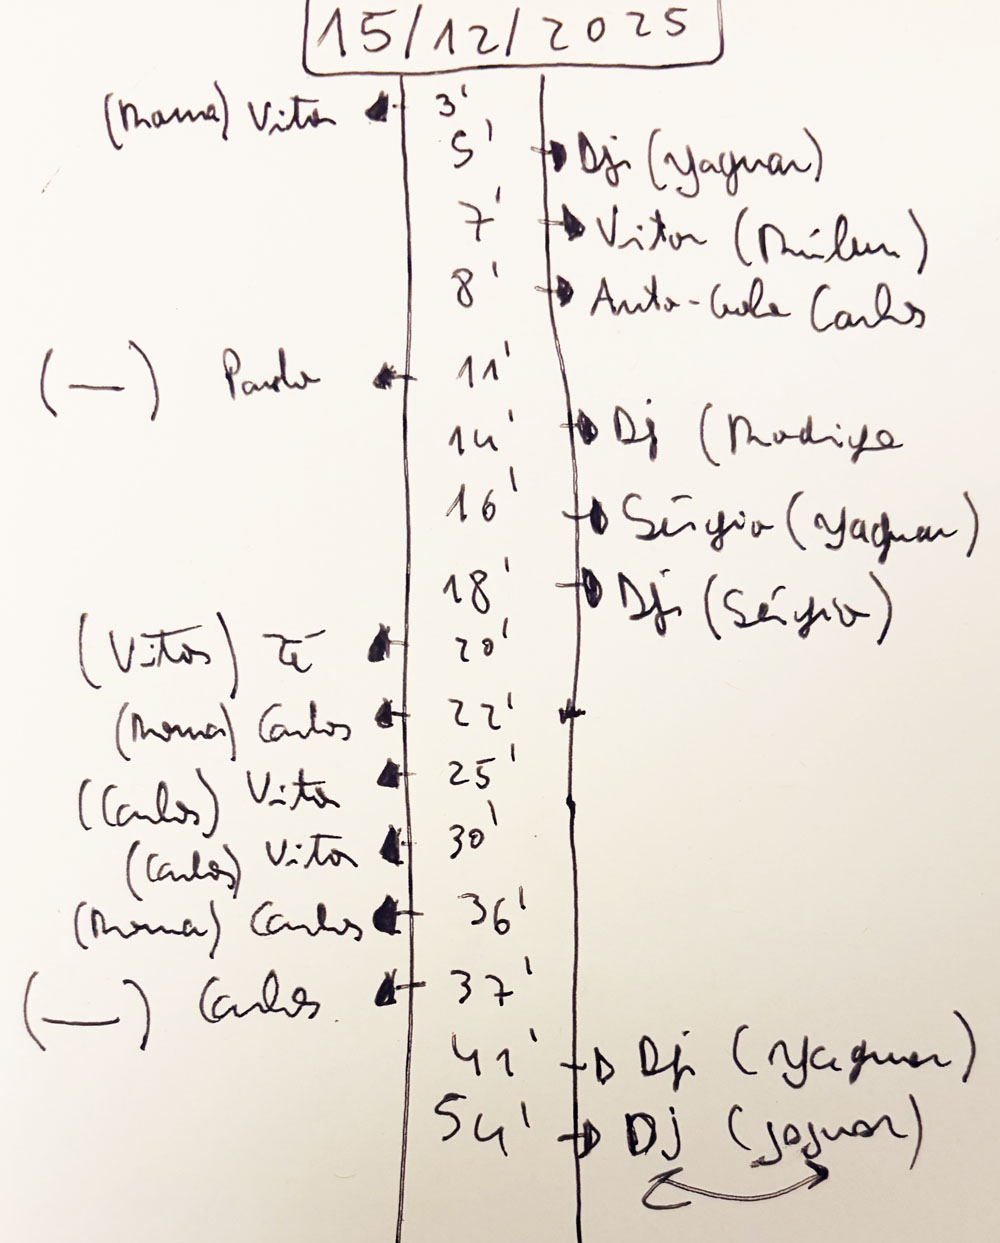 15/12/2025
(Roma) Vitor 3'
5' Dj (Yaguar)
7' Vitor (Rúben)
8' Auto-Golo Carlos
(—) Paulo 11'
14' Dj (Rodrigo
16' Sérgio (Yaguar)
18' Dj (Sérgio)
(Vitor) Zé 20'
(Roma) Carlos 22'
(Carlos) Vitor 25'
(Carlos) Vitor 30'
(Roma) Carlos 36'
(—) Carlos 37'
41' Dj (Yaguar)
54' Dj (Jaguar)